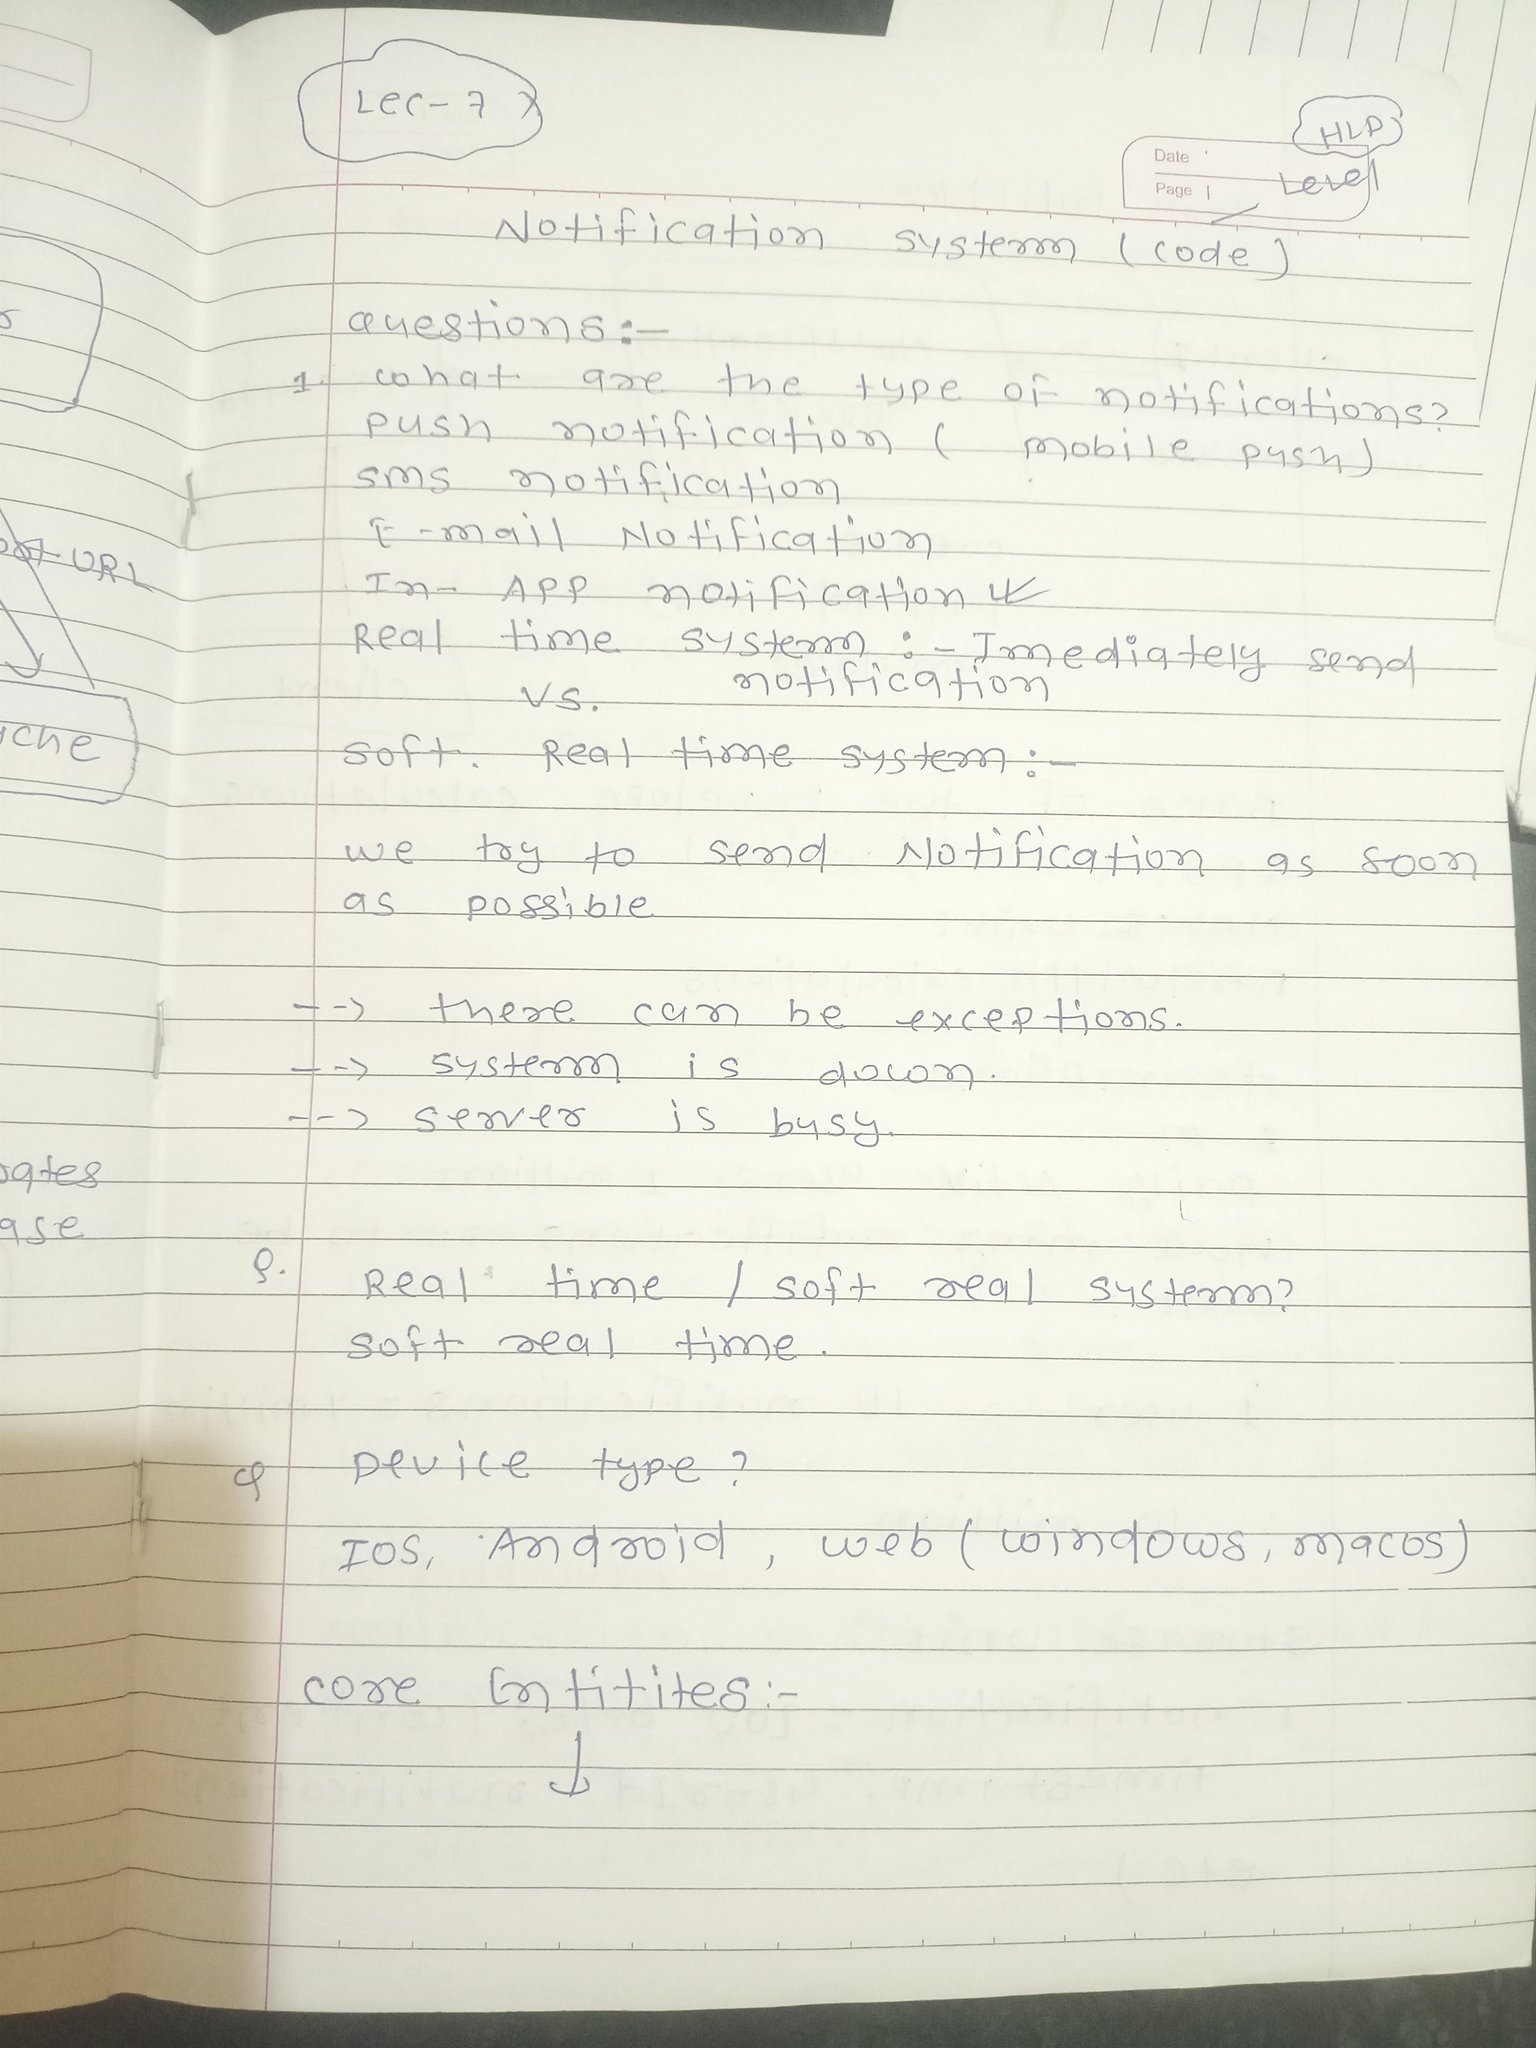 Lec-7
HLD
Date
Page 1
Level
Notification system (code)
Questions:-
1. what are the type of notifications?
push notification ( mobile push)
sms notification
E-mail Notification
In- App notification
Real time system :- Imediately send
notification
vs.
soft. Real time system :-
we try to send Notification as soon
as possible
--> there can be exceptions.
--> system is down.
--> server is busy.
Q. Real time / soft real system?
soft real time.
Q Device type?
IOS, Android, web (windows, macos)
core Entitites:-
URL
che
ates
ase